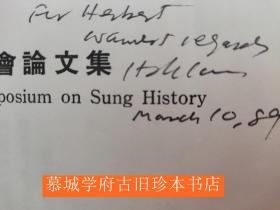 For Herbert
Warmest regards
會論文集
posium on Sung History
March 10, 89
慕城学府古旧珍本书店